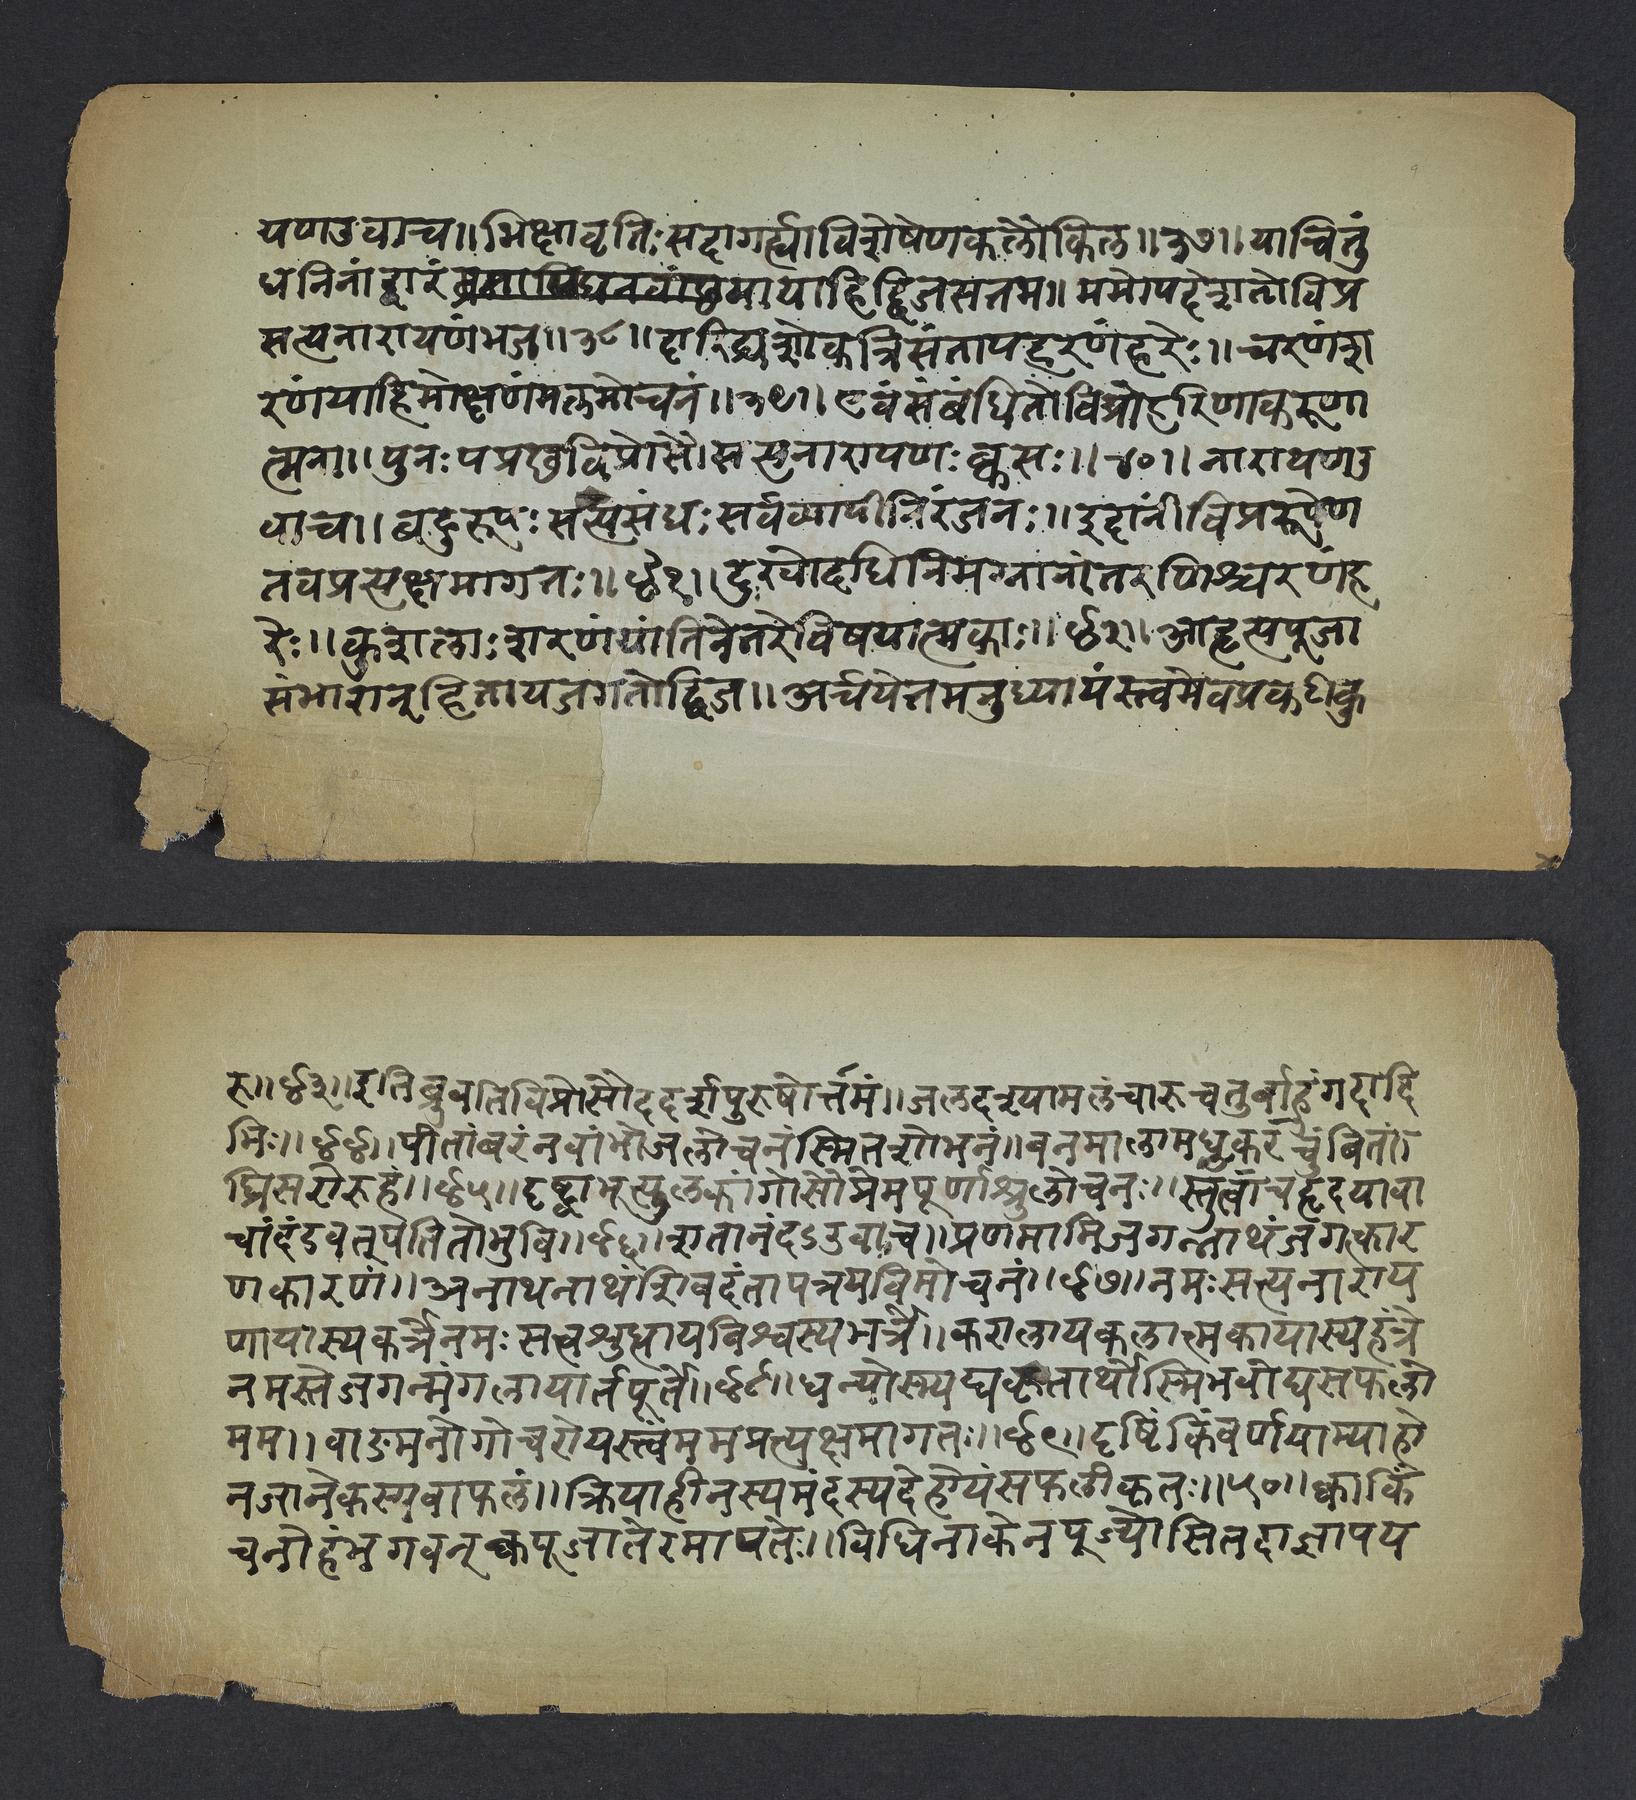 यणउवाच॥भिक्षावृत्तिःसदागर्ह्याविशेषेणकलौकिल॥३७॥याचितुं
धनिनांद्वारंमायाहिद्विजसत्तम॥ममोपदेशतोविप्र
सत्यनारायणंभज॥३८॥दारिद्र्यशोकत्रिसंतापहरणंहरेः॥चरणंश
रणंयाहिमोक्षणंमलमोचनं॥३९॥एवंसंबंधितोविप्रोहरिणाकरुणा
त्मना॥पुनःपप्रछविप्रोसौसत्यनारायणःक्वसः॥४०॥नारायणउ
वाच॥बहुरूपःसत्यसंधःसर्वव्यापीनिरंजनः॥इदानींविप्ररूपेण
तवप्रत्यक्षमागतः॥४१॥दुःखोदधिनिमग्नानांतरणिश्चरणंह
रेः॥कुशलाःशरणंयांतिनेतरेविषयात्मकाः॥४२॥आहृत्यपूजा
संभारान्हितायजगतोद्विज॥अर्चयेतमनुध्यायंस्त्वमेवप्रकटीकु
रु॥४३॥इतिब्रुवतिविप्रोसौददर्शपुरुषोर्त्तमं॥जलदश्यामलंचारुचतुर्बाहुंगदादि
भिः॥४४॥पीतांबरंनवांभोजलोचनंस्मितशोभनं॥वनमालामधुकरचुंबितां
घ्रिसरोरुहं॥४५॥दृष्ट्वाभूत्पुलकांगोसौप्रेमपूर्णाश्रुलोचनः॥स्तुत्वाचहृदयावा
चांदंडवत्पतितोभुवि॥४६॥शतानंदउवाच॥प्रणमामिजगन्नाथंजगत्कार
णकारणं॥अनाथनाथंशिवदंतापत्रयविमोचनं॥४७॥नमःसत्यनाराय
णायास्यकर्त्रेनमःसत्वशुधायविश्वस्यभर्त्रे॥करालायकलात्मकायास्यहंत्रे
नमस्तेजगन्मंगलायार्तपूर्ते॥४८॥धन्योस्म्यद्यकृतार्थोस्मिभवोद्यसफलो
मम॥वाङमनोगोचरोयस्त्वंममप्रत्यक्षमागतः॥४९॥दृष्टिंकिंवर्णयाम्याहो
नजानेकस्यवाफलं॥क्रियाहीनस्यमंदस्यदेहोयंसफलीकृतः॥५०॥क्वाकिं
चनोहंभगवन्क्वपूजातेरमापतेः॥विधिनाकेनपूज्योसितदाज्ञापय